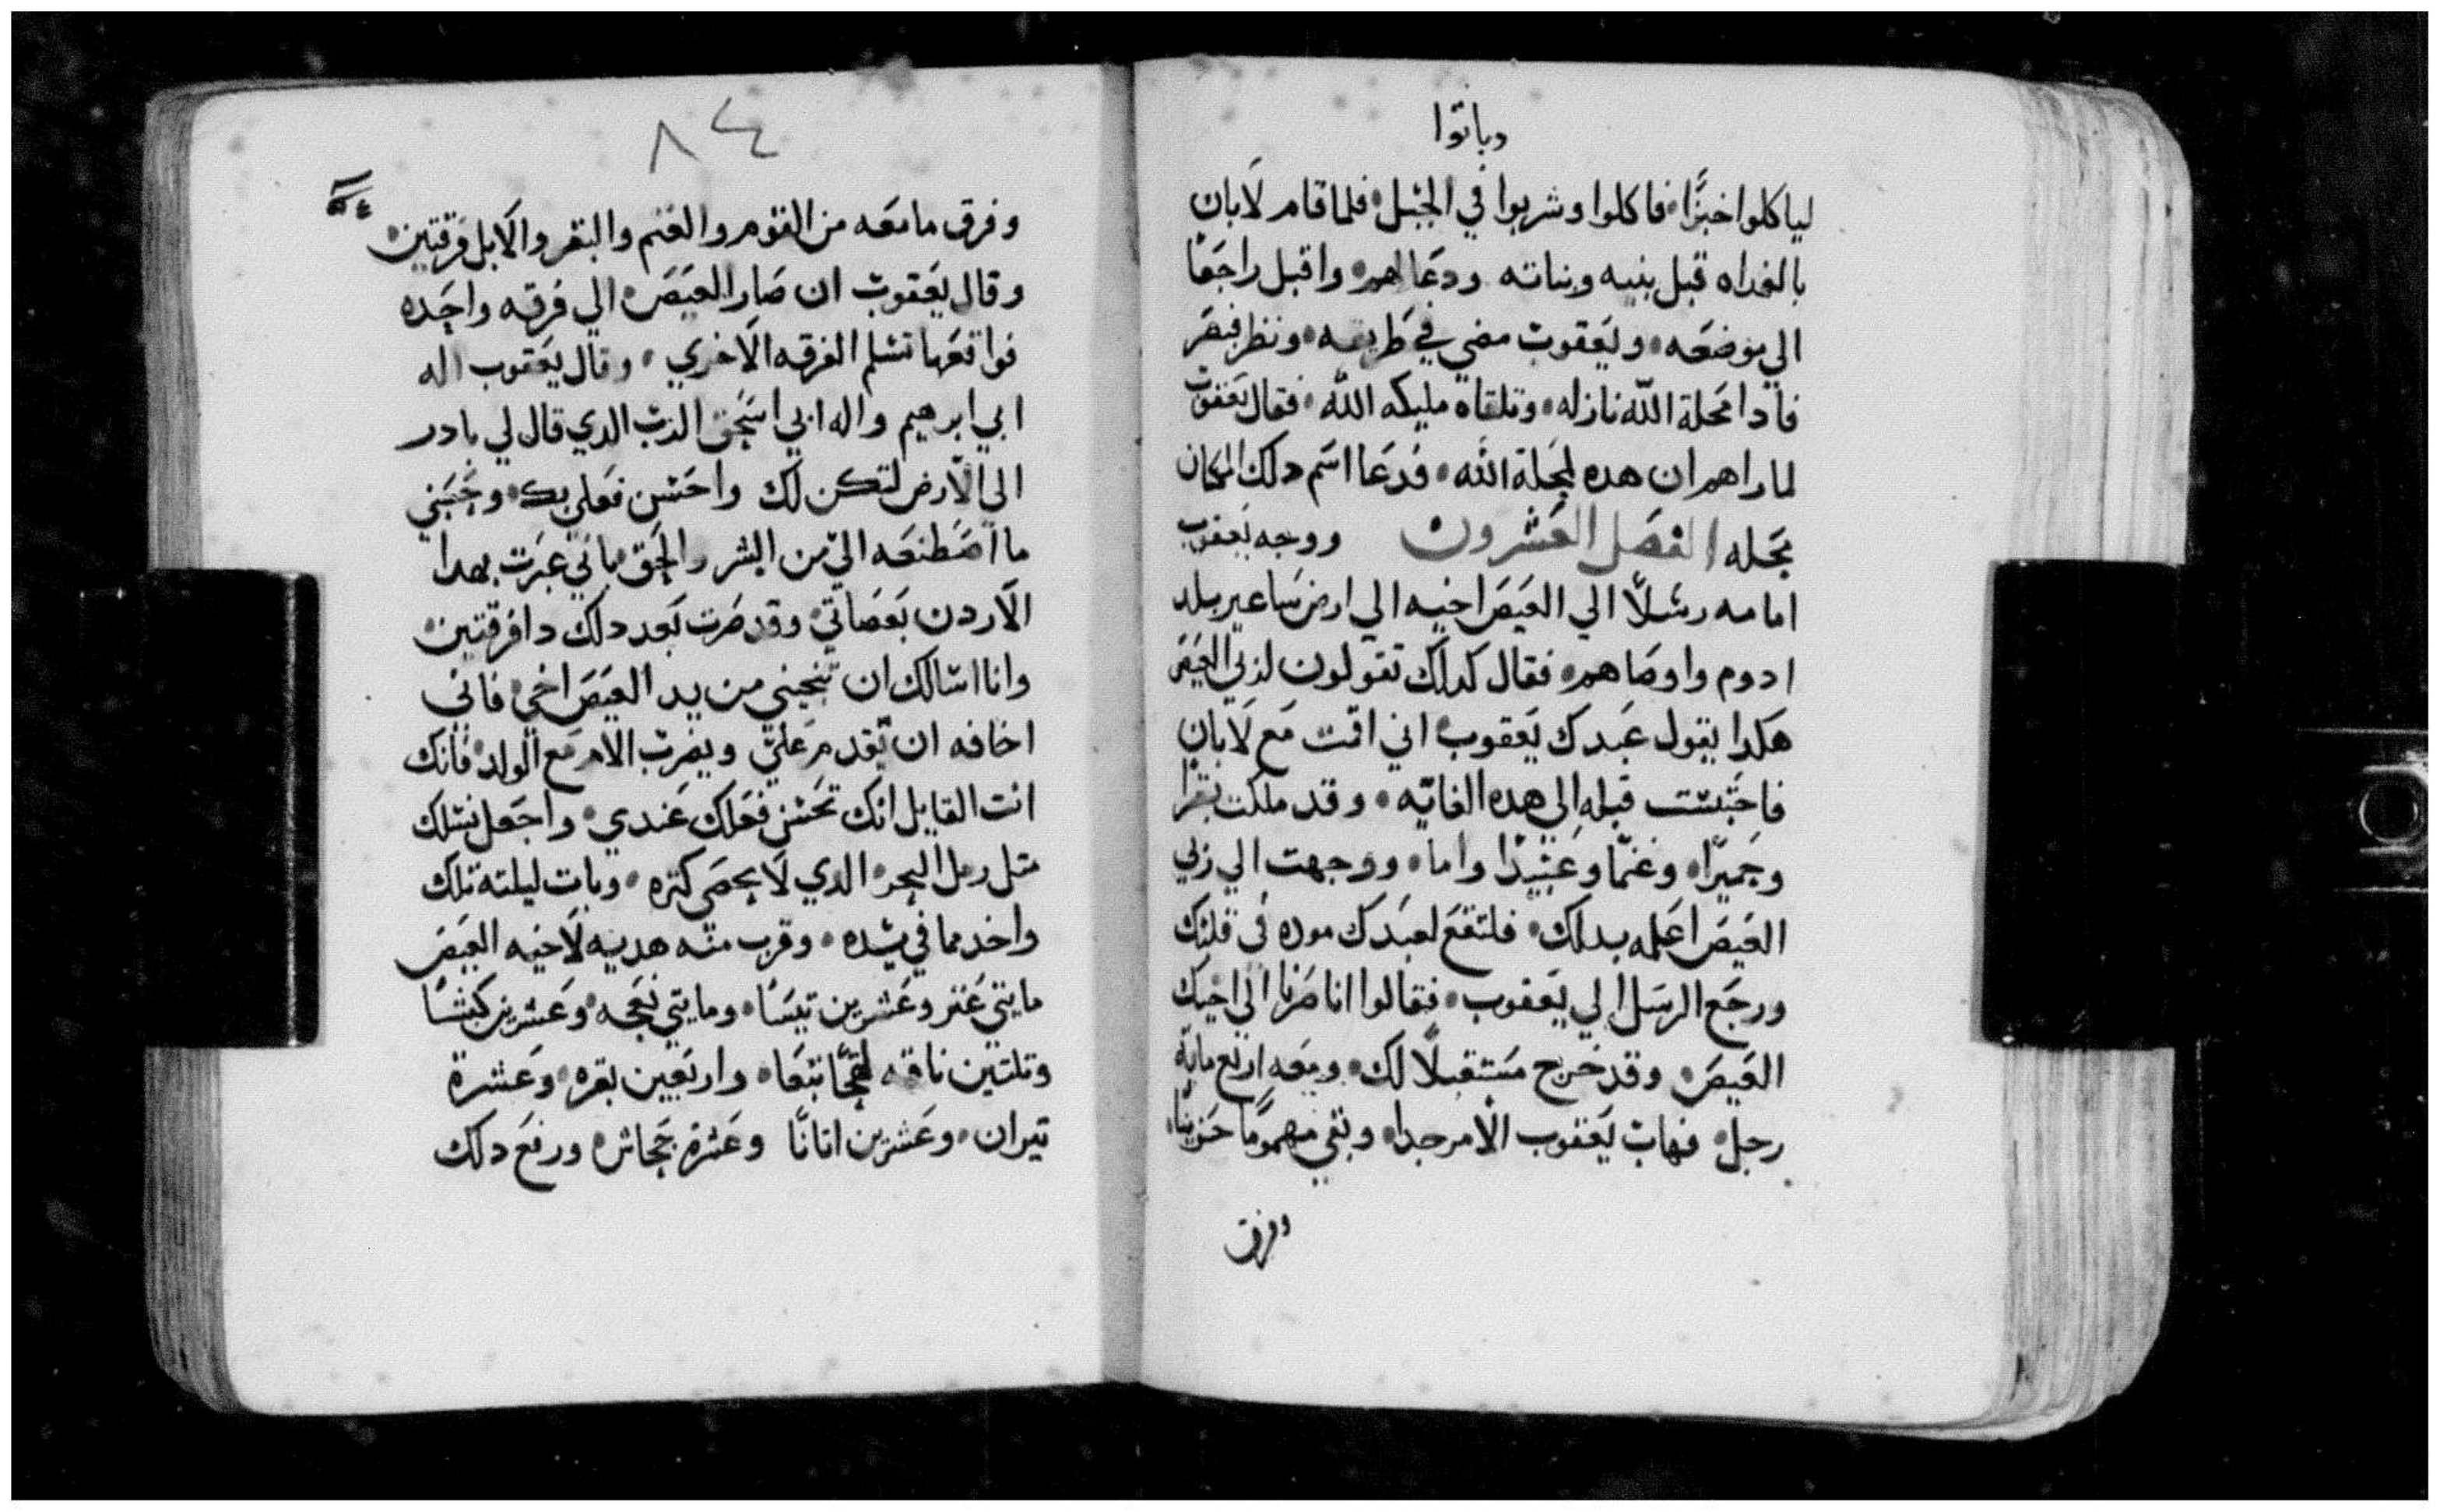 وباتوا
لياكلوا خبزًا فاكلوا وشربوا في الجبل فلما قام لابان
بالغداه قبل بنيه وبناته ودعا لهم واقبل راجعًا
الي موضعه ويعقوب مضي في طريقه ونظر فبصر
فادا محلة الله نازله وتلقاه مليكه الله فقال يعقوب
لما راهم ان هده لمحلة الله فدعا اسم دلك المكان
محله الفصل العشرون ووجه يعقوب
امامه رسلًا الي العيص اخيه الي ارض ساعير بلد
ادوم واوصاهم فقال كدلك تقولون لربي العيص
هكدا يقول عبدك يعقوب اني اقمت مع لابان
فاحتبست قبله الي هده الغايه وقد ملكت بقرا
وحميرًا وغنمًا وعبيدًا واما ووجهت الي ربي
العيص اعلمه بدلك فلتقع لعبدك موده في قلبك
ورجع الرسل الي يعقوب فقالوا انا صرنا الي اخيك
العيص وقد خرج مستقبلًا لك ومعه اربع مايه
رجل فهاب يعقوب الامر جدا وبقي مهمومًا حزينًا
وفرق
٨٤
وفرق ما معه من القوم والغنم والبقر والابل فرقتين
وقال يعقوب ان صار العيص الي فرقه واحده
فواقعها تسلم الفرقه الاخري وقال يعقوب اله
ابي ابرهيم واله ابي اسحق الرب الدي قال لي بادر
الي الارض لتكن لك واحسن فعلي بك وحسبي
ما اصطنعه الي من البشر والحق باني عبرت بهدا
الاردن بعصاتي وقد صرت بعد دلك دا فرقتين
وانا اسالك ان تنجيني من يد العيص اخي فاني
اخافه ان يقدم علي ويضرب الام مع الولد فانك
انت القايل انك تحسن فعلك عندي واجعل نسلك
متل رمل البحر الدي لا يحصي كتره وبات ليلته تلك
واخد مما في يده وقرب منه هديه لاخيه العيص
مايتي عنز وعشرين تيسًا ومايتي نعجه وعشرين كبشًا
وتلتين ناقه لقحًا تتبعا واربعين بقره وعشرة
تيران وعشرين اتانًا وعشرة جحاش ورفع دلك